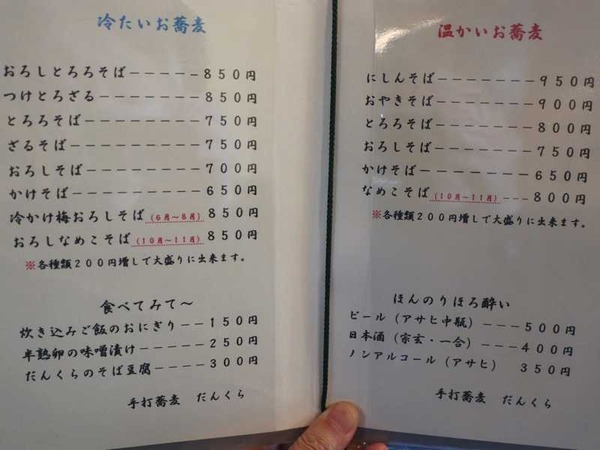 冷たいお蕎麦
おろしとろろそば－－－－－８５０円
つけとろざる－－－－－－８５０円
とろろそば－－－－－－－７５０円
ざるそば－－－－－－－－７５０円
おろしそば－－－－－－－７００円
かけそば－－－－－－－－６５０円
冷かけ梅おろしそば（６月～８月）８５０円
おろしなめこそば（１０月～１１月）８５０円
※各種類２００円増しで大盛りに出来ます。
食べてみて～
炊き込みご飯のおにぎり－－１５０円
半熟卵の味噌漬け－－－－２５０円
だんくらのそば豆腐－－－－３００円
手打蕎麦　だんくら
温かいお蕎麦
にしんそば－－－－－－－９５０円
おやきそば－－－－－－－９００円
とろろそば－－－－－－－８００円
おろしそば－－－－－－－７５０円
かけそば－－－－－－－－６５０円
なめこそば（１０月～１１月）－－－８００円
※各種類２００円増しで大盛りに出来ます。
ほんのりほろ酔い
ビール（アサヒ中瓶）－－－５００円
日本酒（宗玄・一合）－－－－４００円
ノンアルコール（アサヒ）　３５０円
手打蕎麦　だんくら